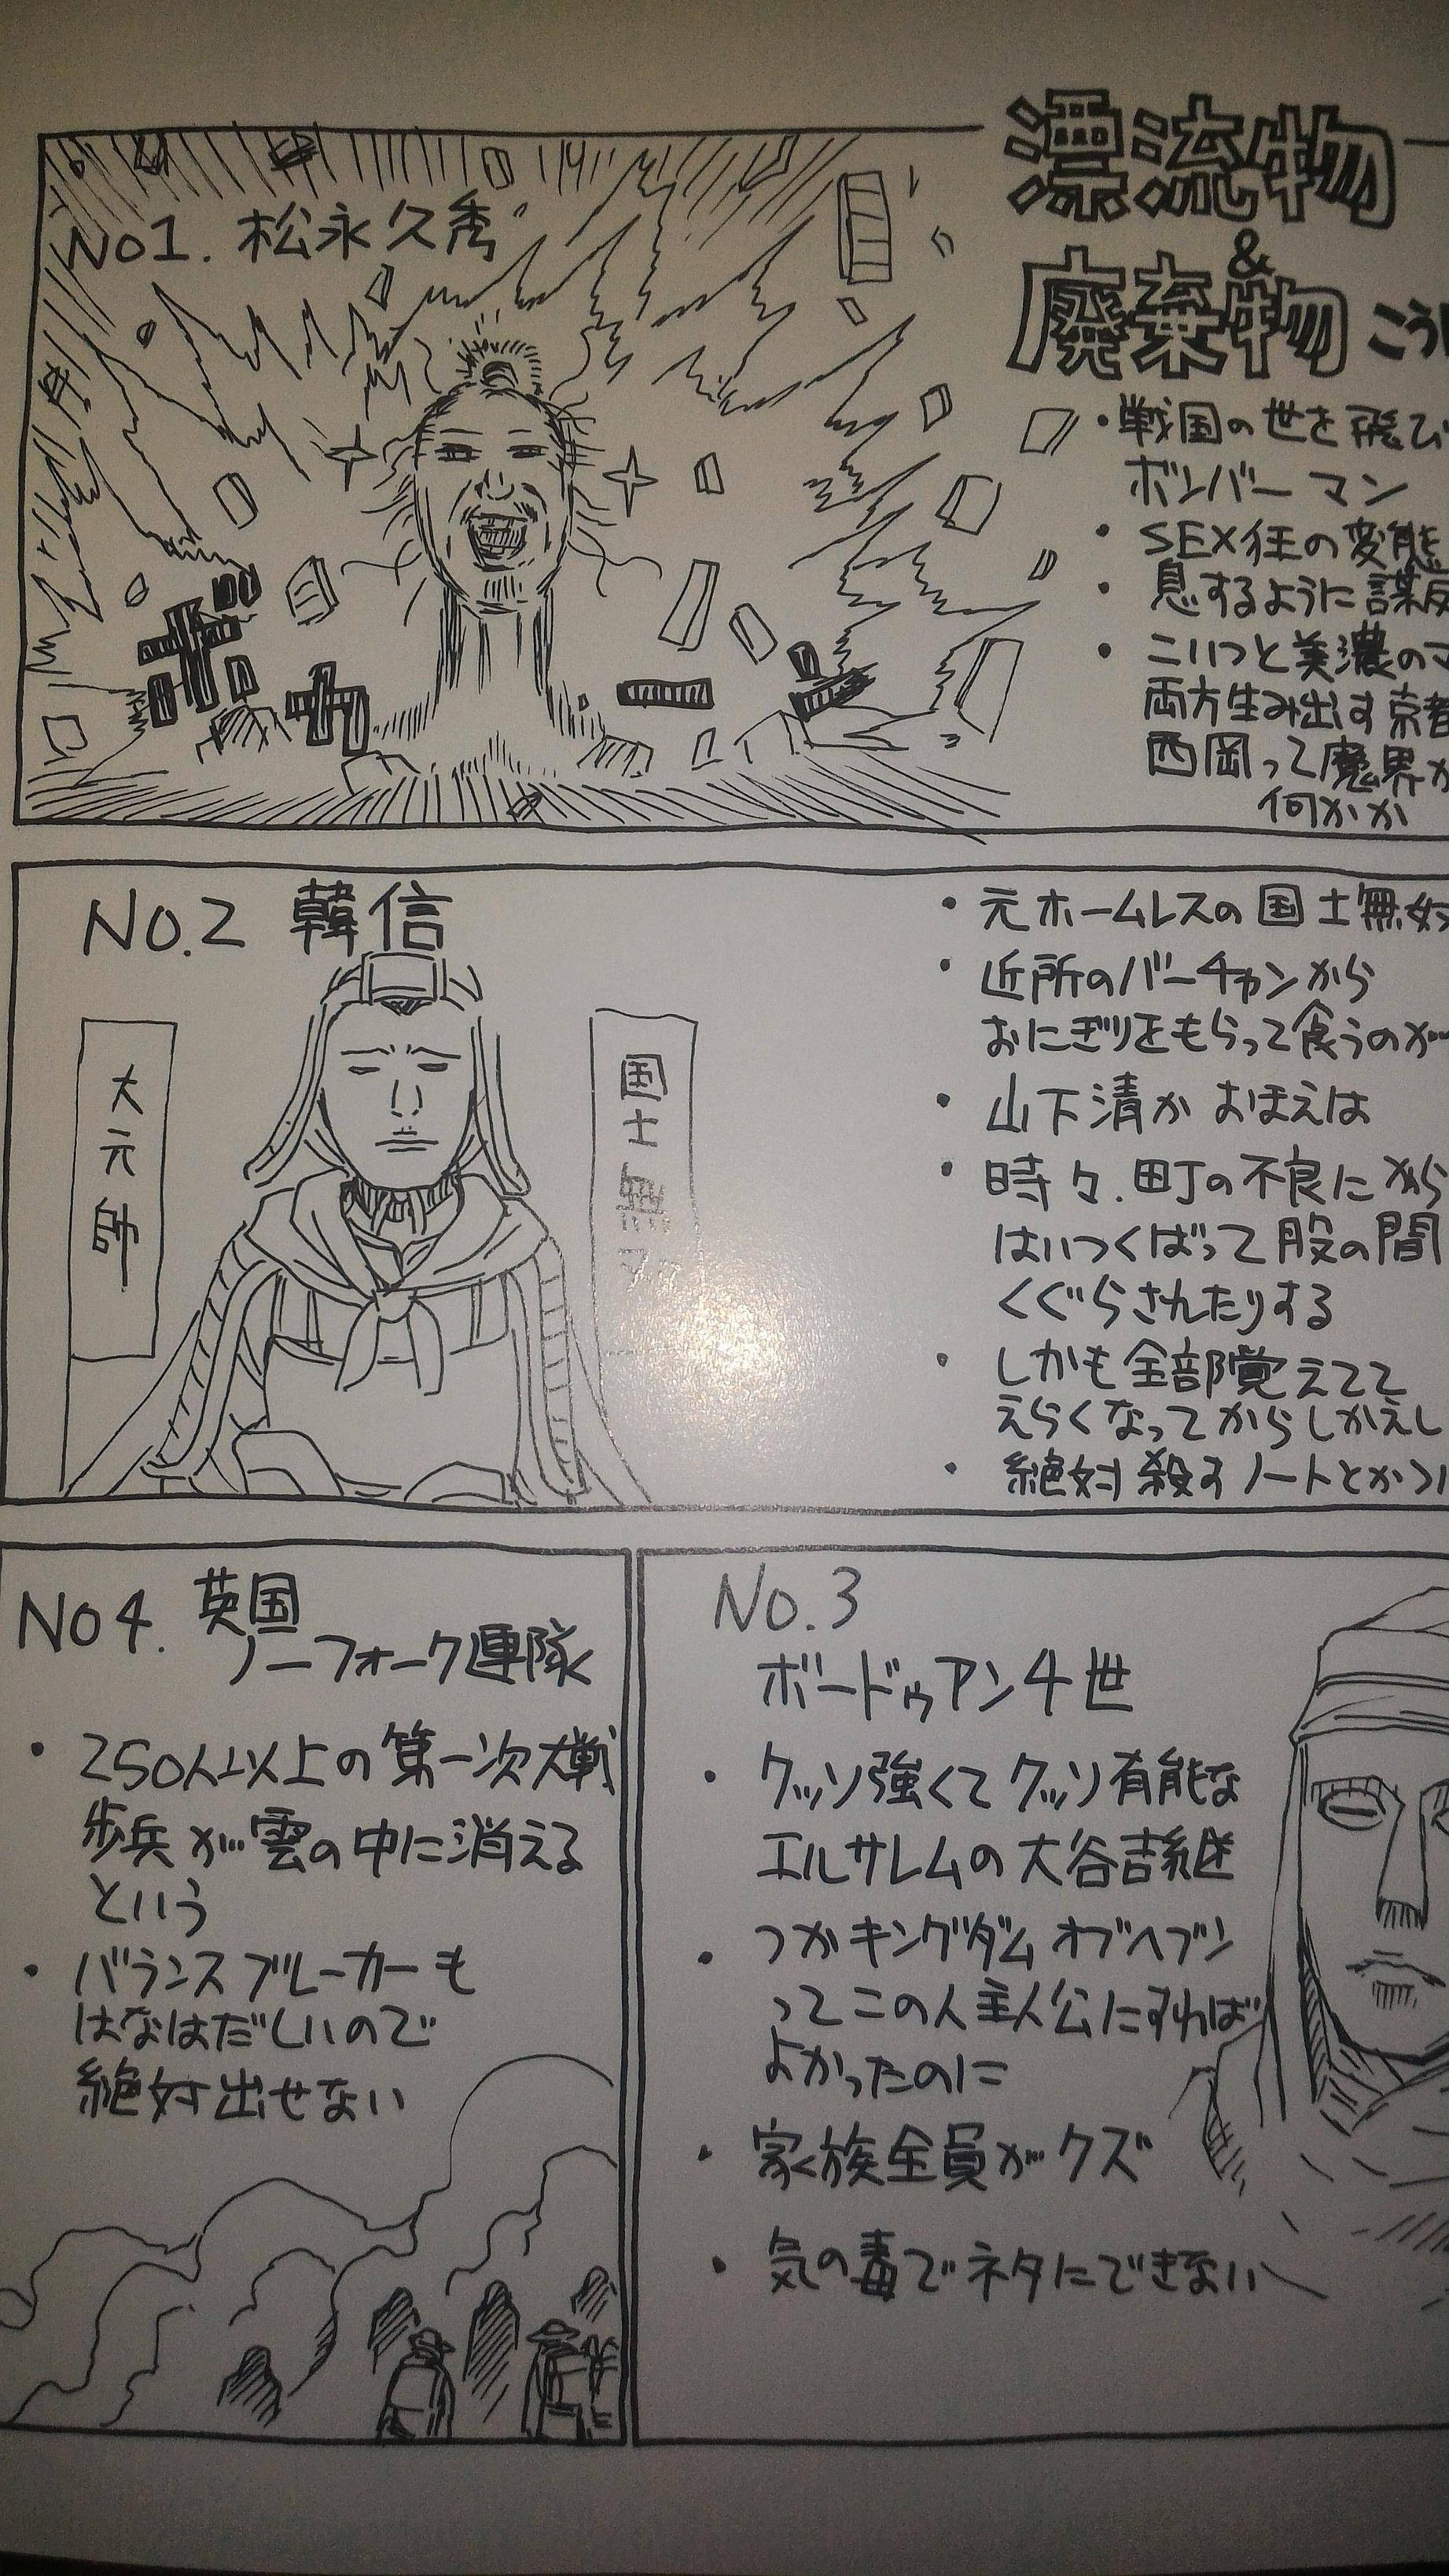 漂流物
&
廃棄物 こう
No1. 松永久秀
・戦国の世を飛び
ボンバーマン
・SEX狂の変態
・息するように謀反
・こいつと美濃のマ
両方生み出す京都
西岡って魔界か
何かか
No.2 韓信
大元帥
国士無双
・元ホームレスの国士無双
・近所のバーチャンから
おにぎりをもらって食うのが
・山下清か おまえは
・時々.町の不良にから
はいつくばって股の間
くぐらされたりする
・しかも全部覚えてて
えらくなってからしかえし
・絶対殺すノートとかつ
No.3
ボードゥアン4世
・クッソ強くてクッソ有能な
エルサレムの大谷吉継
・つかキングダムオブヘブン
ってこの人主人公にすれば
よかったのに
・家族全員がクズ
・気の毒でネタにできない
No4. 英国
ノーフォーク連隊
・250人以上の第一次大戦
歩兵が雲の中に消える
という
・バランスブレーカーも
はなはだしいので
絶対出せない